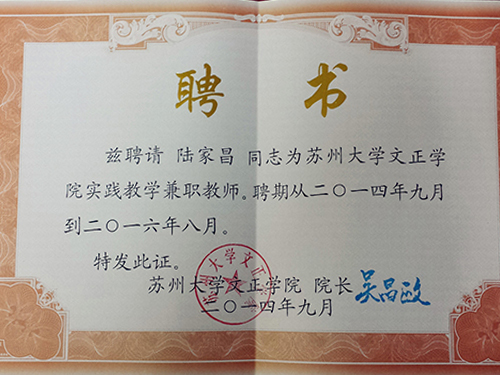 聘书
兹聘请 陆家昌 同志为苏州大学文正学
院实践教学兼职教师。聘期从二〇一四年九月
到二〇一六年八月。
特发此证。
苏州大学文正学院 院长 吴昌政
二〇一四年九月
苏州大学文正学院